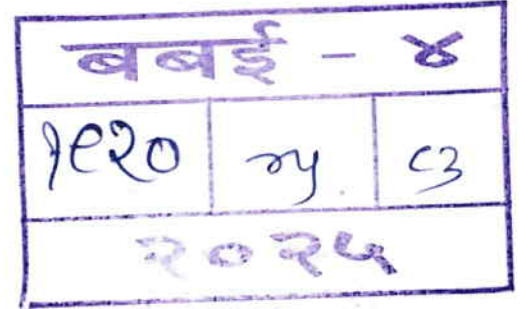 बबई - ४
१९२० ८३
२०२५